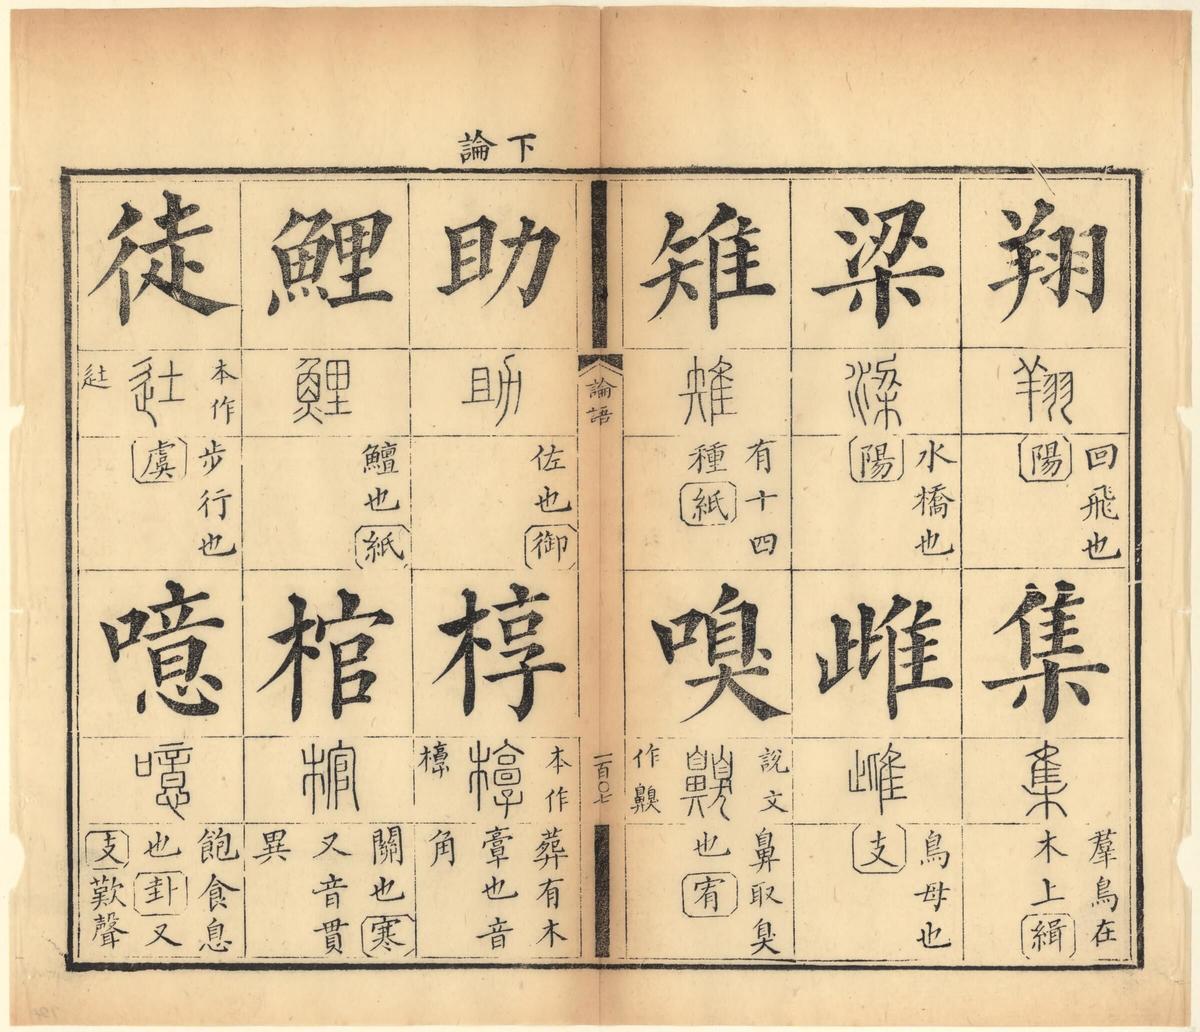 下論
翔
翔
回飛也 陽
集
集
羣鳥在木上 緝
梁
梁
水橋也 陽
雌
雌
鳥母也 支
雉
雉
有十四種 紙
嗅
齅
說文作齅
鼻取臭也 宥
論語
一百〇七
助
助
佐也 御
椁
本作㮯
㮯
葬有木𩫏也音角
鯉
鯉
鱣也 紙
棺
棺
關也 寒 又音貫異
徒
本作𨑒
𨑒
步行也 虞
噫
噫
飽食息也 卦 又 支 歎聲